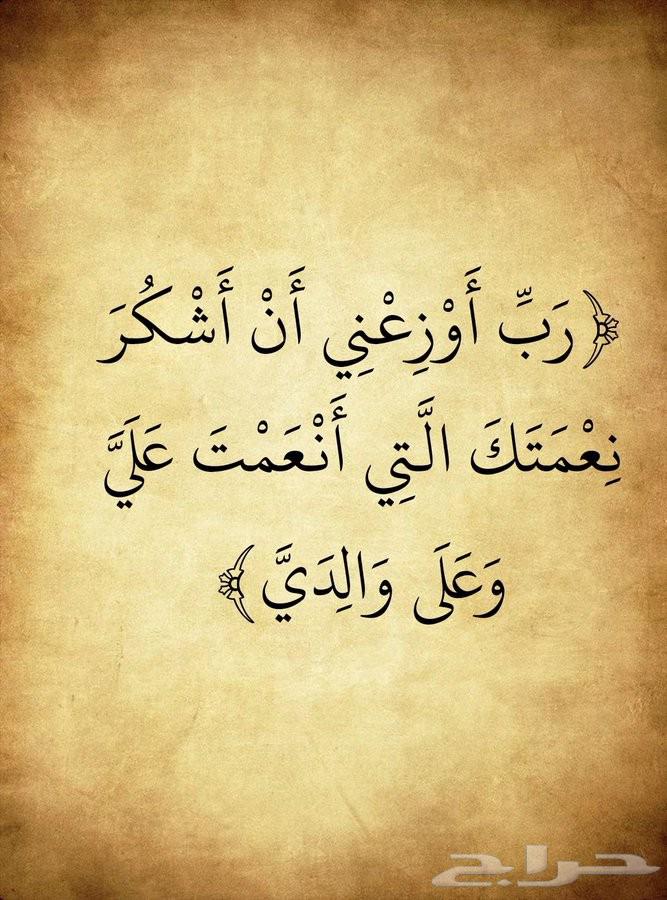 ﴿رَبِّ أَوْزِعْنِي أَنْ أَشْكُرَ
نِعْمَتَكَ الَّتِي أَنْعَمْتَ عَلَيَّ
وَعَلَى وَالِدَيَّ﴾
حراج